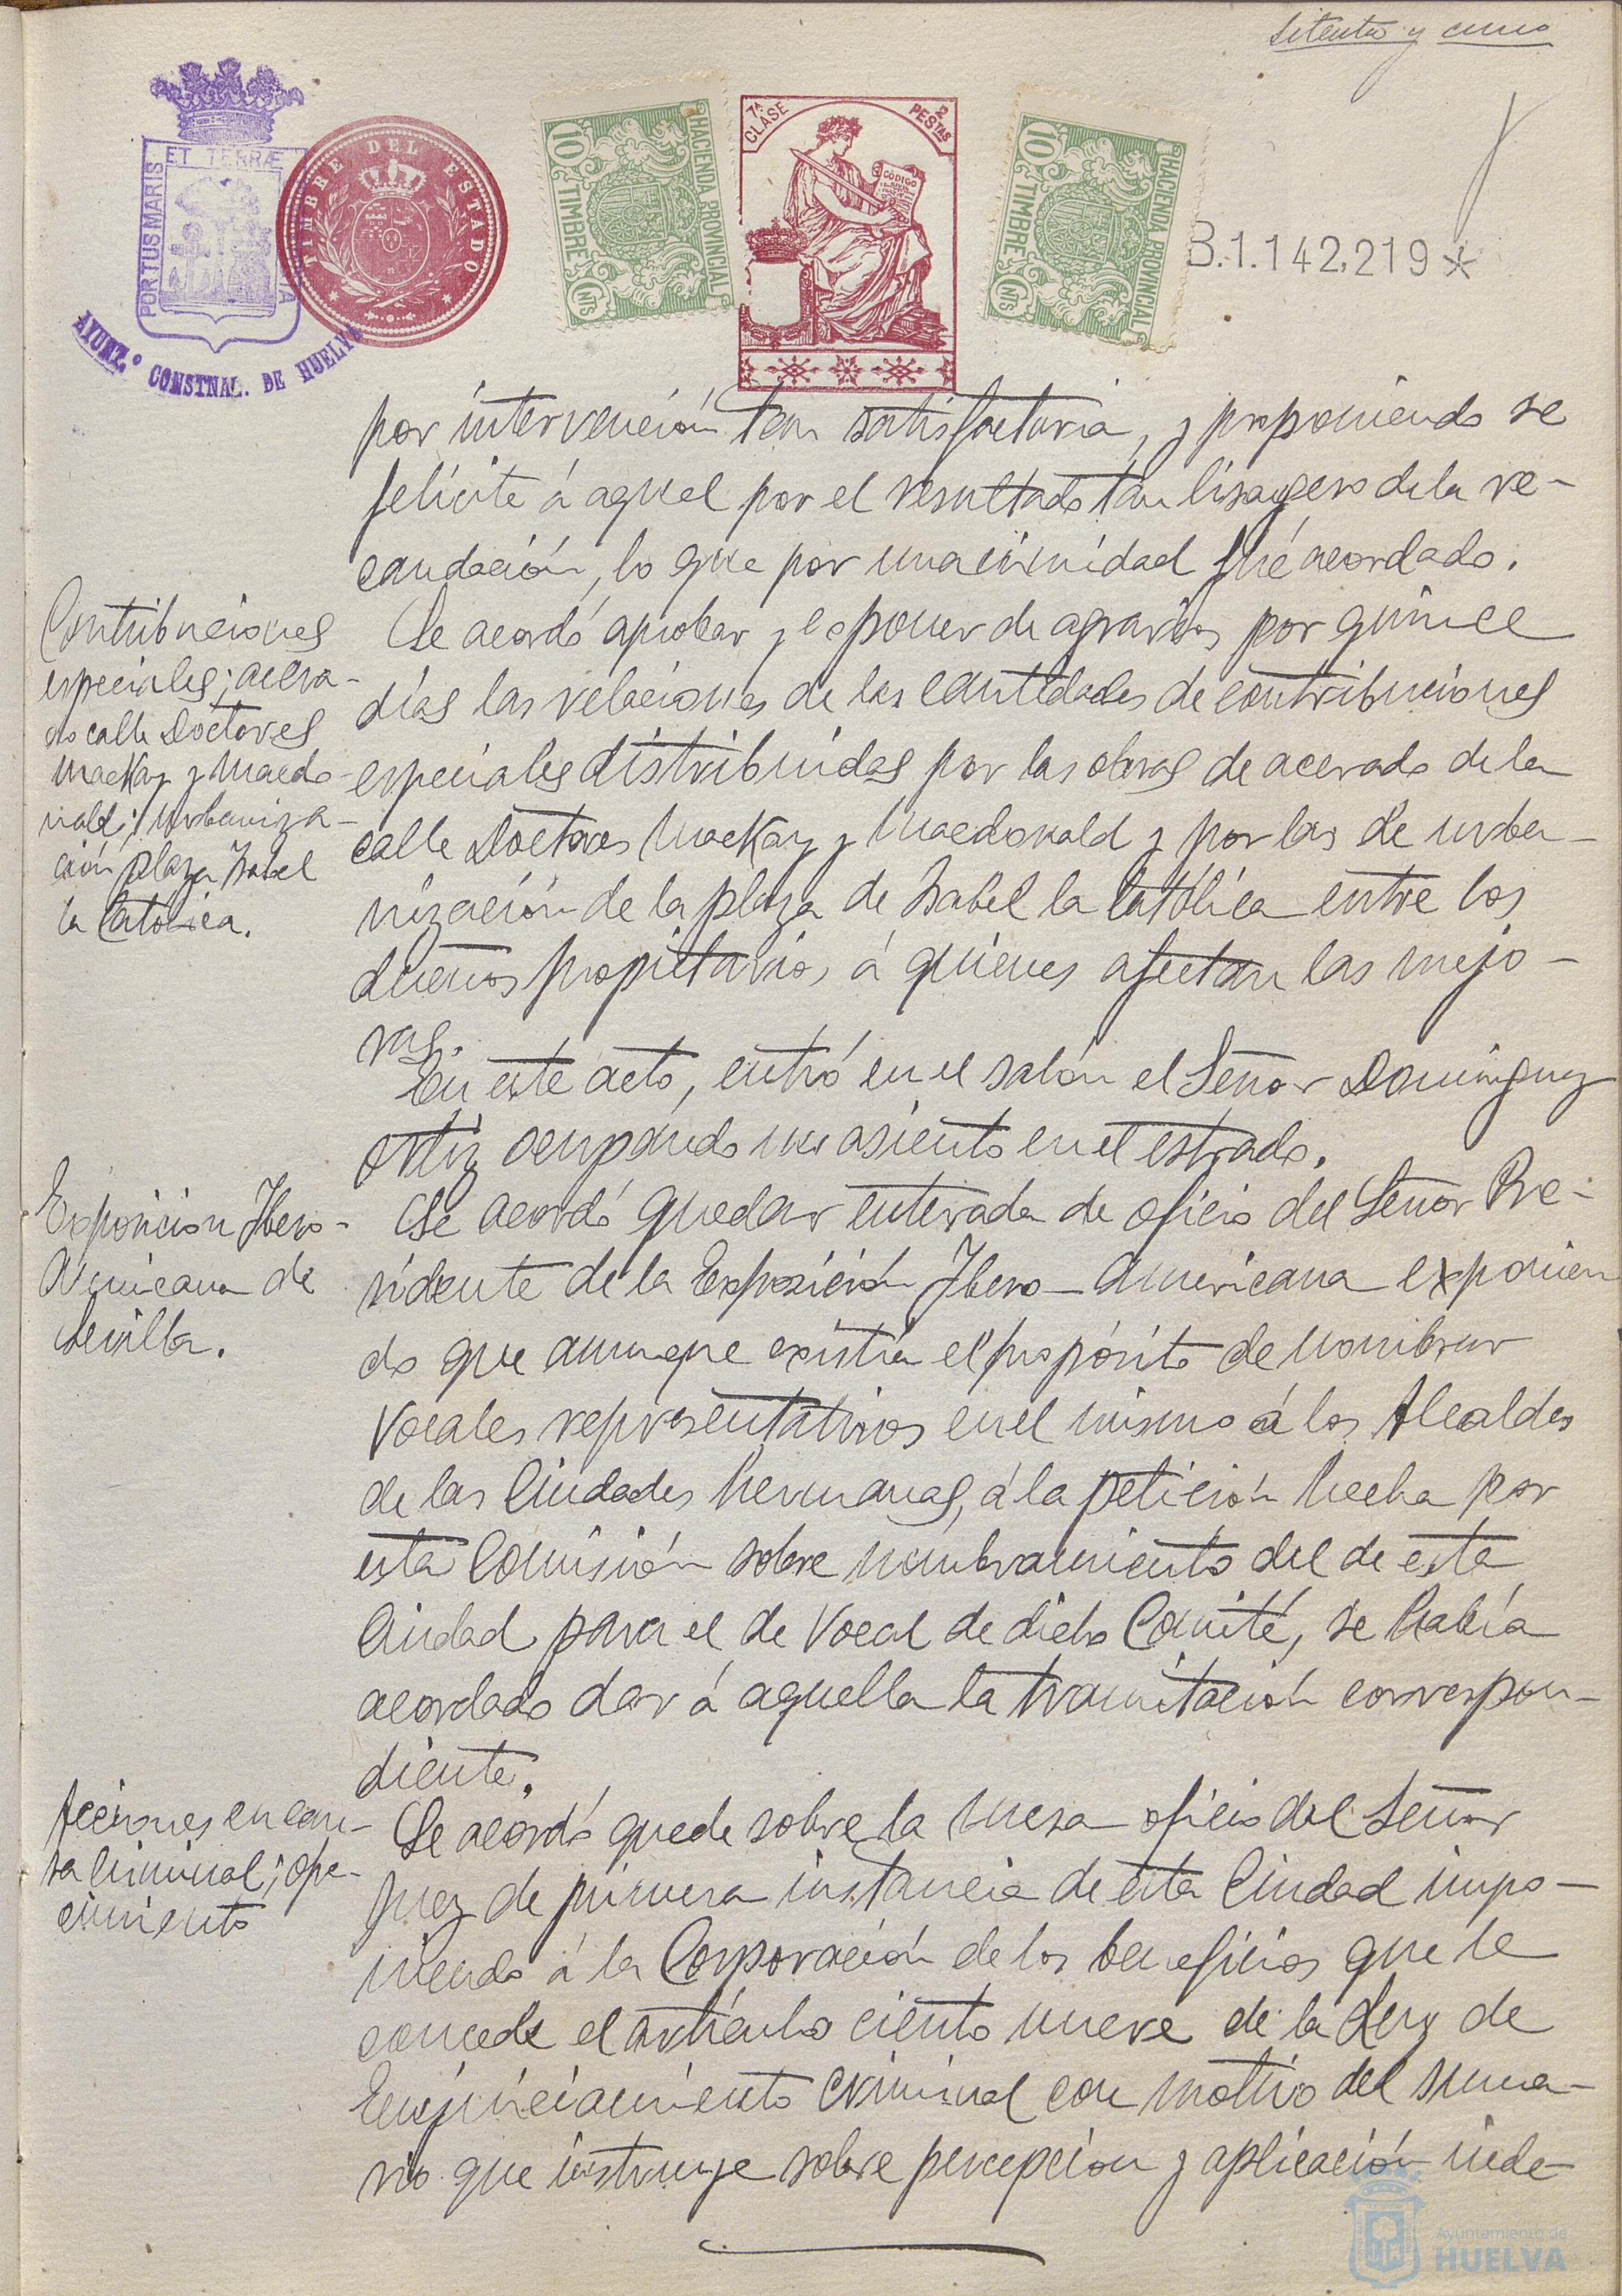 Setenta y cinco
ET TERRÆ
PORTUS MARIS
AYUNT.º CONSTNAL. DE HUELVA
TIMBRE DEL ESTADO
HACIENDA PROVINCIAL
10 CNTS TIMBRE
7ª CLASE
2 PESTAS
CODIGO
HACIENDA PROVINCIAL
10 CNTS TIMBRE
B.1.142,219*
por intervención tan satisfactoria, y proponiendo se
felicite á aquel por el resultado tan lisogero de la re-
caudación, lo que por unanimidad fué acordado.
Contribuciones
especiales; acera-
do calle Doctores
Mackay y Macdo-
nald; urbaniza-
ción plaza Isabel
la Católica.
Se acordó aprobar y esponer de agravios por quince
días las relaciones de las cantidades de contribuciones
especiales distribuidas por las obras de acerado de la
calle Doctores Mackay y Macdonald y por las de urba-
nización de la plaza de Isabel la Católica entre los
dueños propietarios á quienes afectan las mejo-
ras.
En este acto, entró en el salón el Señor Dominguez
Ortiz ocupando un asiento en el estrado.
Exposicion Ibero-
Americana de
Sevilla.
Se acordó quedar enterada de oficio del Señor Pre-
sidente de la Exposición Ibero-Americana exponien
do que aunque existía el propósito de nombrar
Vocales representativos en el mismo á los Alcaldes
de las Ciudades hermanas, á la petición hecha por
esta Comisión sobre nombramiento del de esta
Ciudad para el de Vocal de dicho Comité, se había
acordado dar á aquella la tramitación correspon-
diente.
Acciones en cau-
sa criminal; ofre-
cimiento
Se acordó quede sobre la mesa oficio del Señor
Juez de primera instancia de esta Ciudad impo-
niendo á la Corporación de los beneficios que le
concede el artículo ciento nueve de la Ley de
Enjuiciamiento criminal con motivo del suma-
rio que instruye sobre percepcion y aplicación inde-
Ayuntamiento de
HUELVA